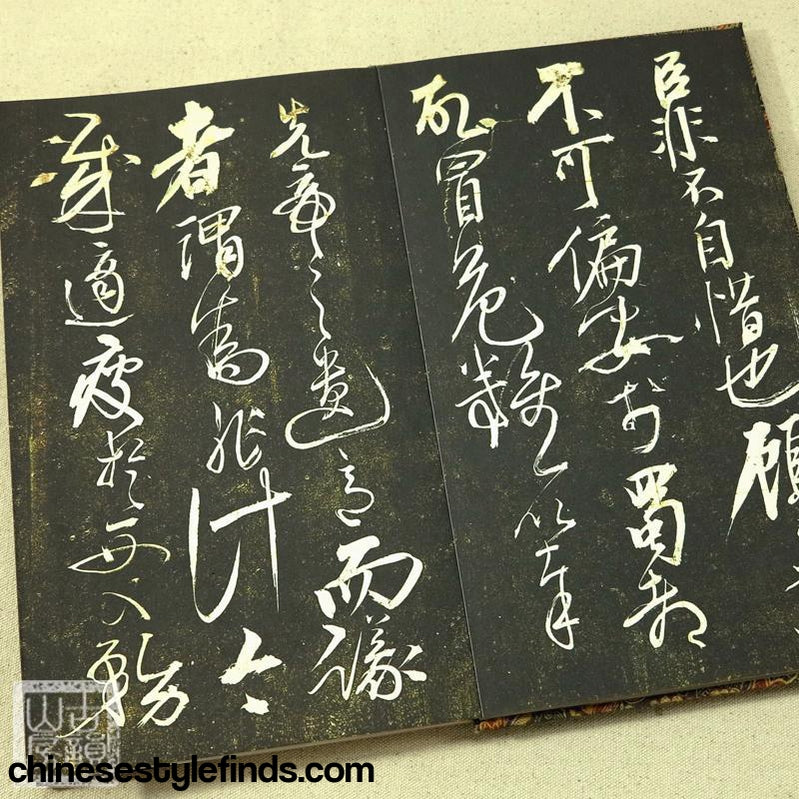 臣非不自惜也顧
不可偏安於蜀都
故冒危難以奉
先帝之遺意而議
者謂為非計今
賊適疲於西又務
chinesestylefinds.com